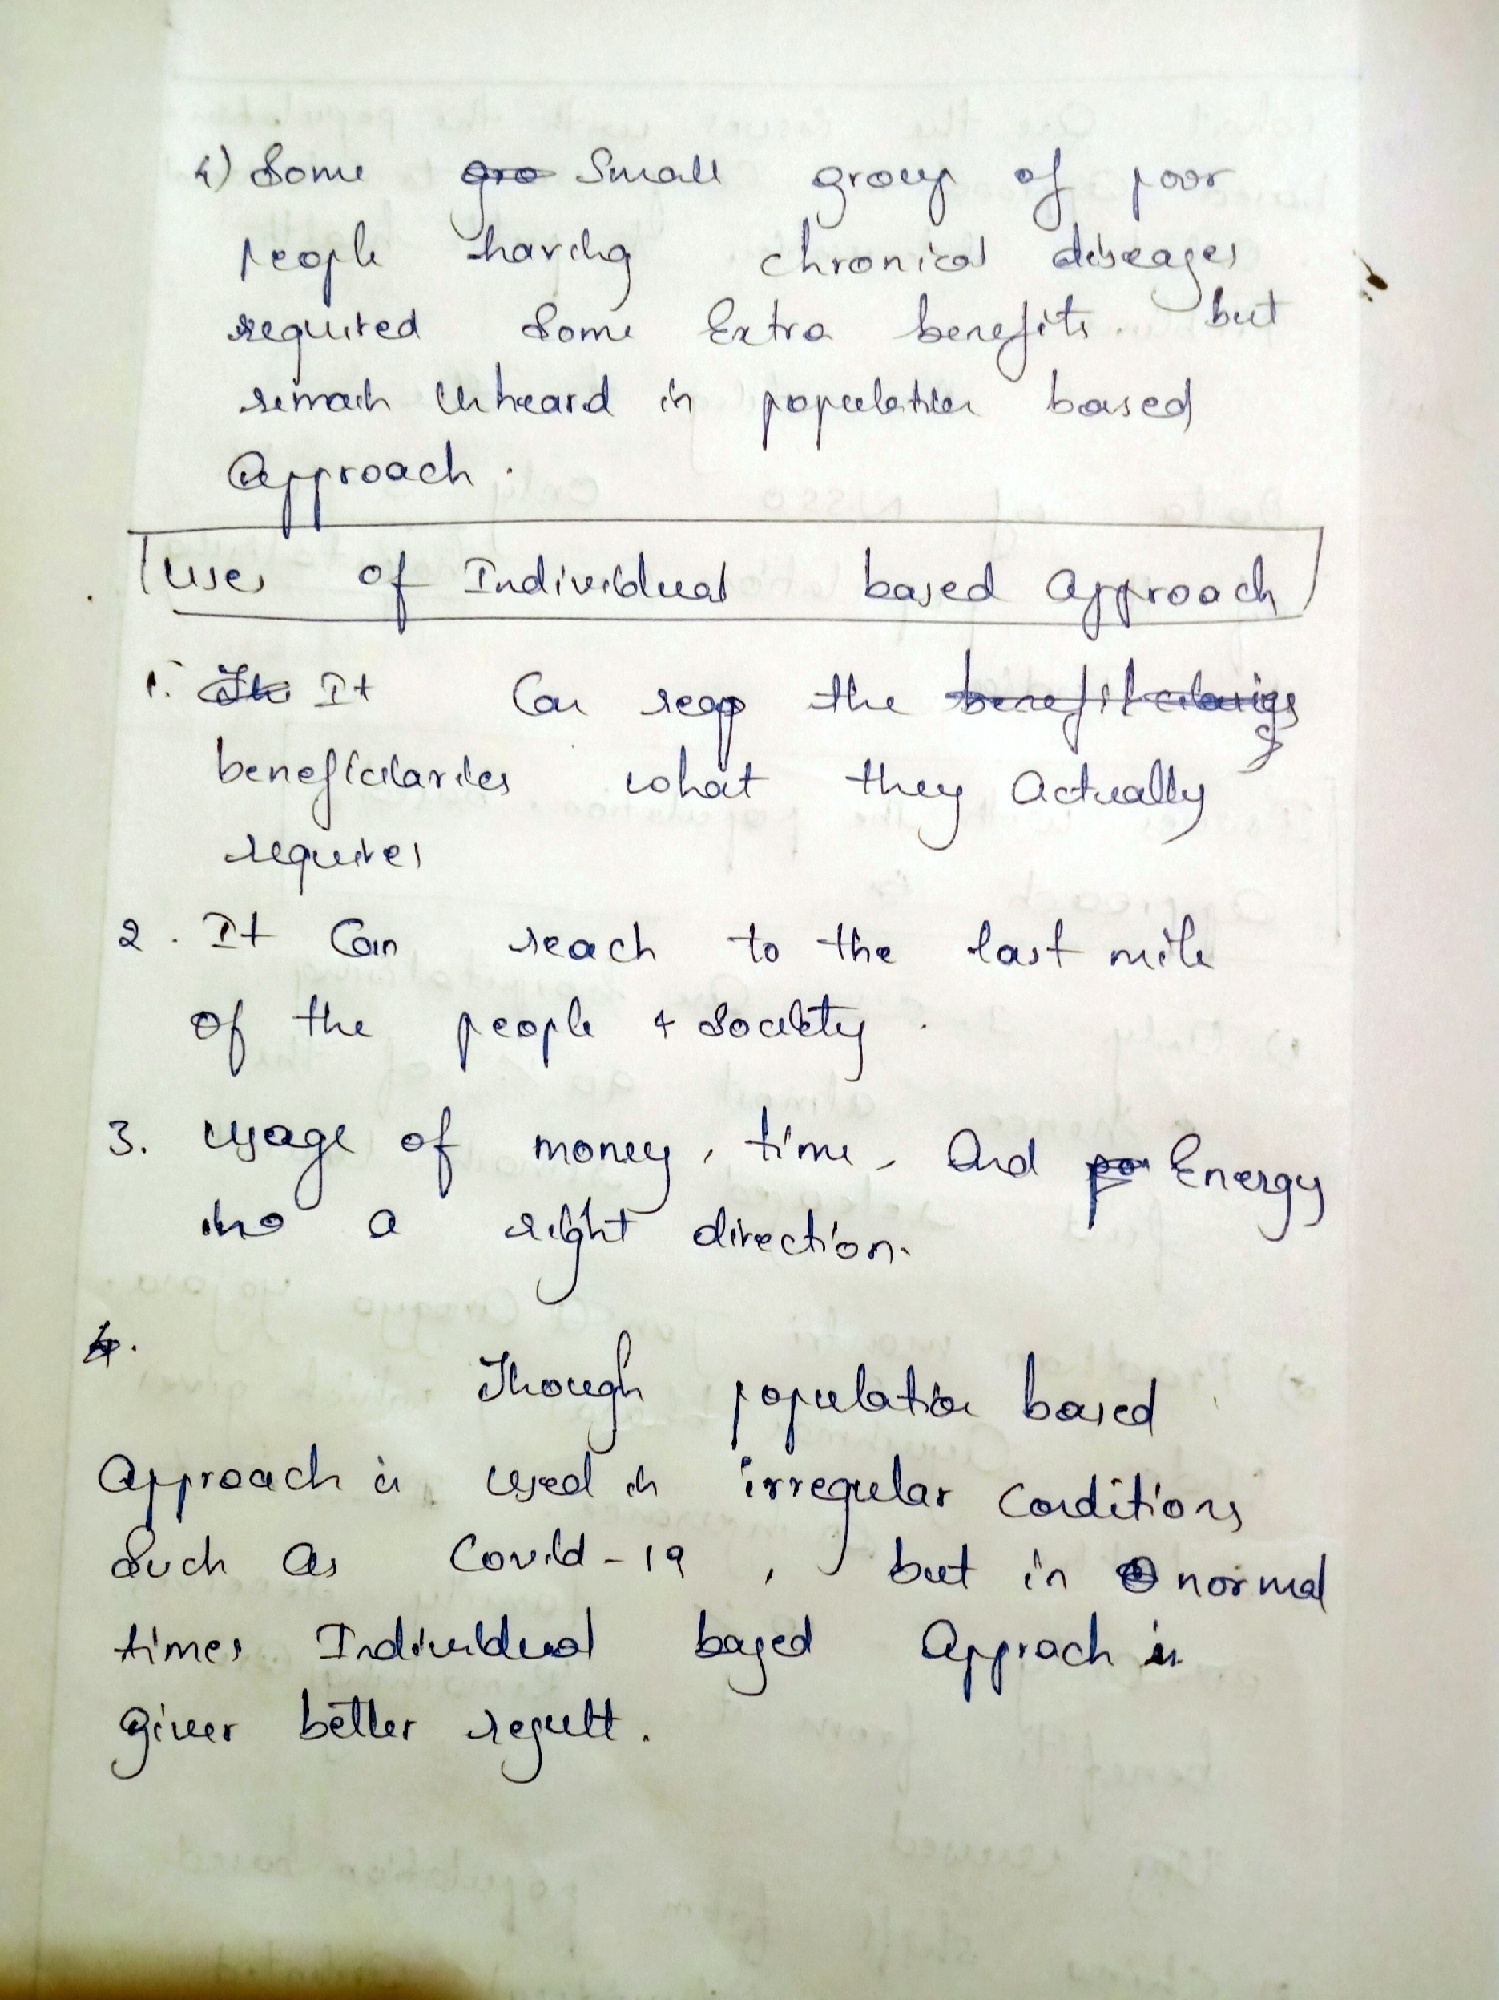 4) Some Small group of poor
people having chronical diseases
required some Extra benefits but
remain unheard in population based
approach.
Uses of Individual based approach
1. It Can reap the
beneficiaries what they actually
requires
2. It Can reach to the last mile
of the people & society.
3. Usage of money, time, and Energy
into a right direction.
Though population based
approach is used in irregular conditions
such as Covid-19, but in normal
times Individual based Approach is
giver better result.